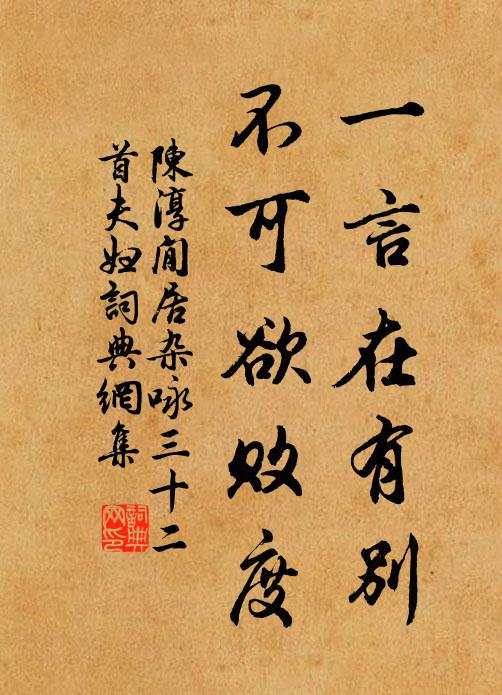 一言在有别
不可欲败度
陳淳閒居杂咏三十二
首夫妇詞典網集
詞典网印